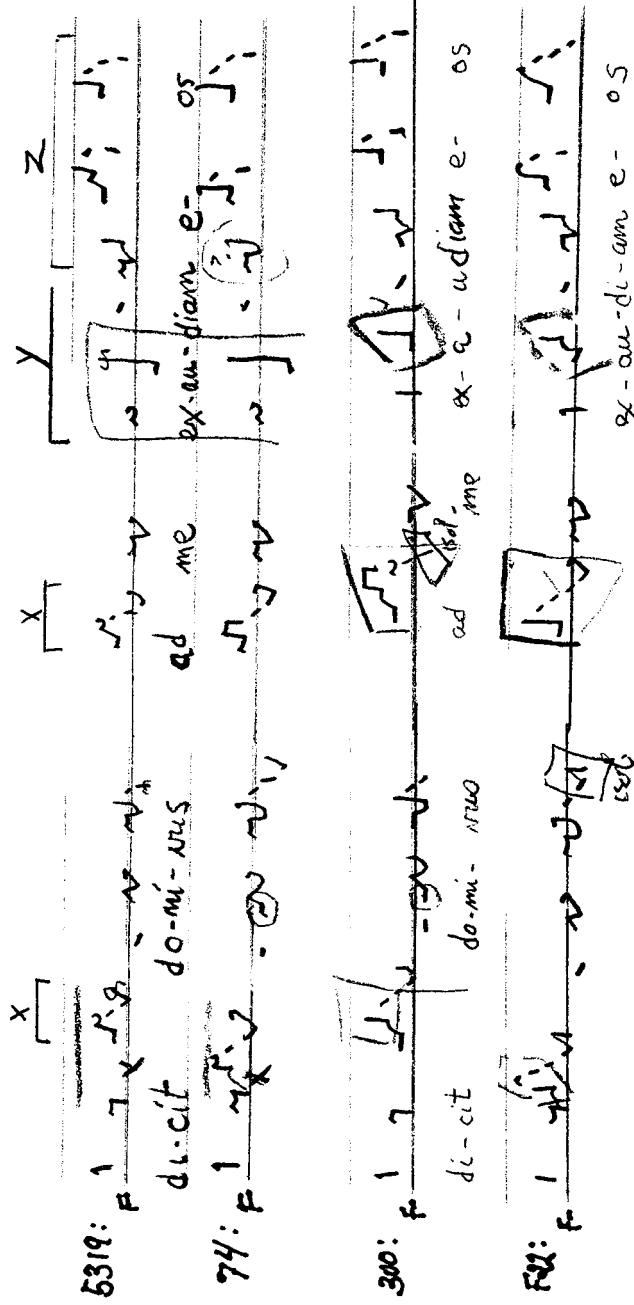 X X Y Z
5319: F
di-cit do-mi-nus ad me ex-au-diam e- os
74: F
300: F
di-cit do-mi-nus ad me ex-a-udiam e- os
isol.
F22: F
isol
ex-au-di-am e- os